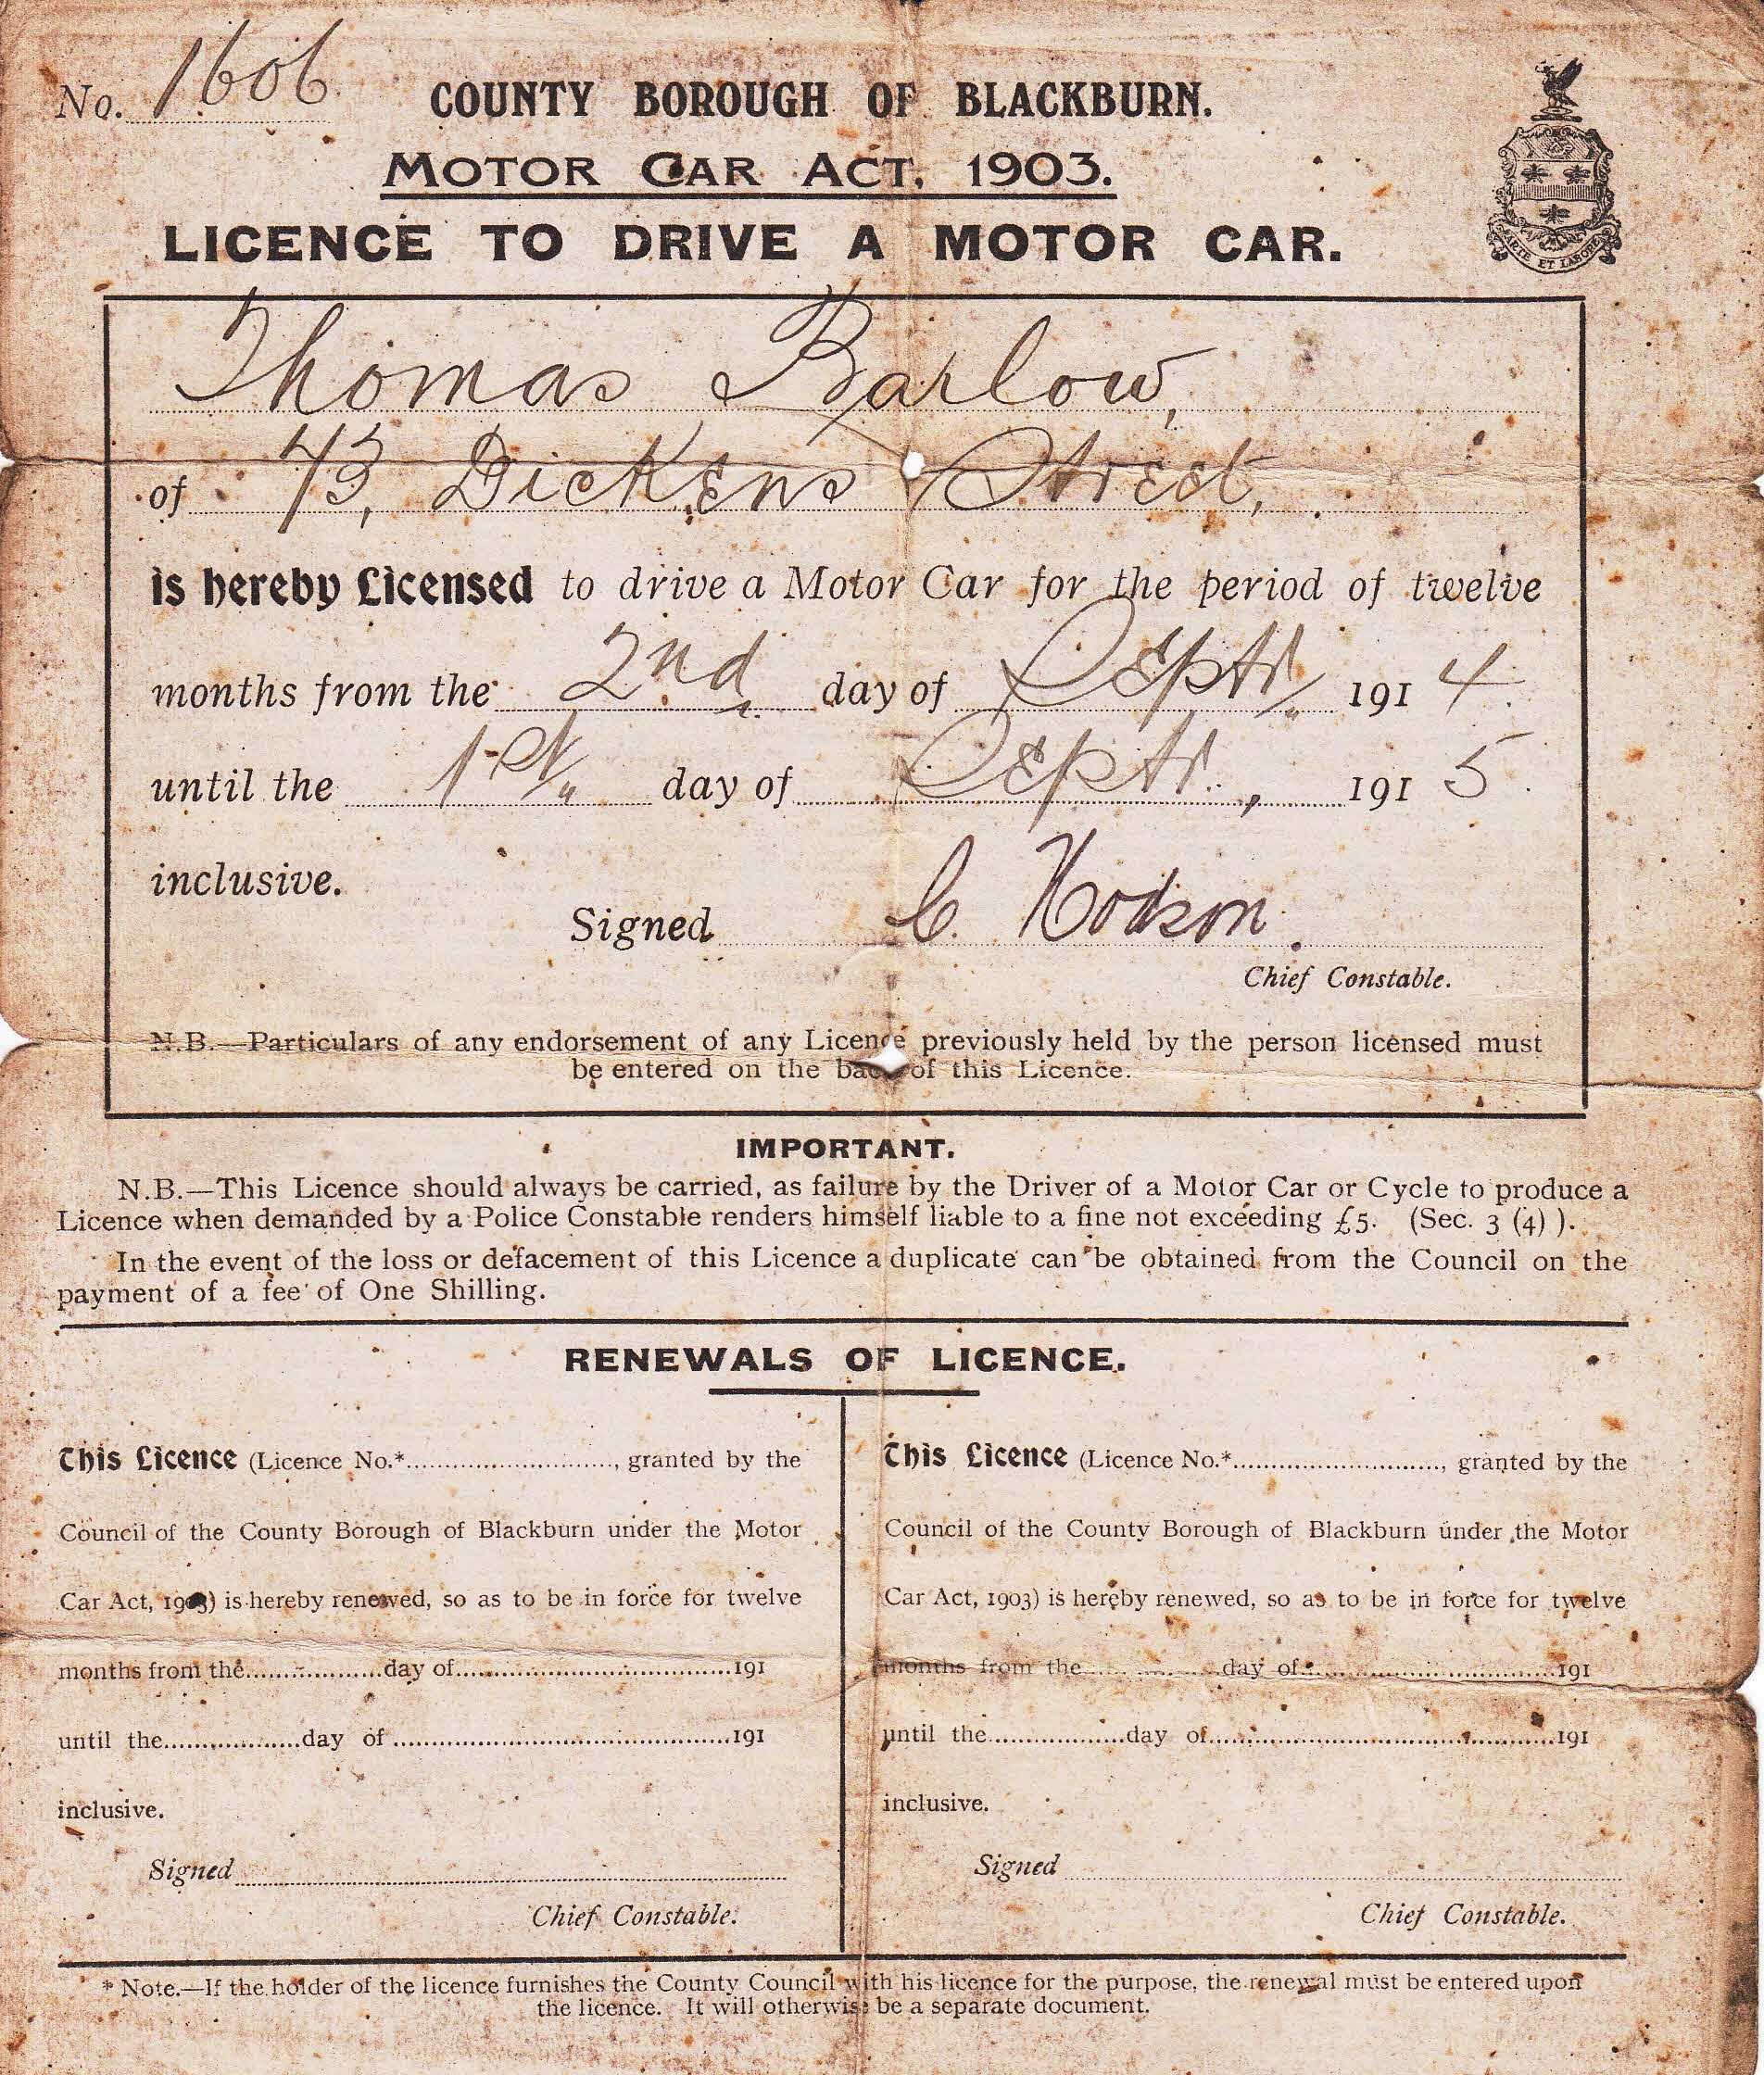 No. 1606
COUNTY BOROUGH OF BLACKBURN.
MOTOR CAR ACT, 1903.
LICENCE TO DRIVE A MOTOR CAR.
ARTE ET LABORE
Thomas Barlow,
of 73, Dickens Street,
is hereby Licensed to drive a Motor Car for the period of twelve
months from the 2nd day of Septr. 1914.
until the 1st day of Septr., 1915.
inclusive.
Signed C. Hodson.
Chief Constable.
N.B.—Particulars of any endorsement of any Licence previously held by the person licensed must
be entered on the back of this Licence.
IMPORTANT.
N.B.—This Licence should always be carried, as failure by the Driver of a Motor Car or Cycle to produce a
Licence when demanded by a Police Constable renders himself liable to a fine not exceeding £5. (Sec. 3 (4) ).
In the event of the loss or defacement of this Licence a duplicate can be obtained from the Council on the
payment of a fee of One Shilling.
RENEWALS OF LICENCE.
This Licence (Licence No.*..........................., granted by the
Council of the County Borough of Blackburn under the Motor
Car Act, 1903) is hereby renewed, so as to be in force for twelve
months from the..................day of....................................191
until the..................day of ............................................191
inclusive.
Signed
Chief Constable.
This Licence (Licence No.*..........................., granted by the
Council of the County Borough of Blackburn under the Motor
Car Act, 1903) is hereby renewed, so as to be in force for twelve
months from the..................day of....................................191
until the..................day of............................................191
inclusive.
Signed
Chief Constable.
* Note.—If the holder of the licence furnishes the County Council with his licence for the purpose, the renewal must be entered upon
the licence. It will otherwise be a separate document.